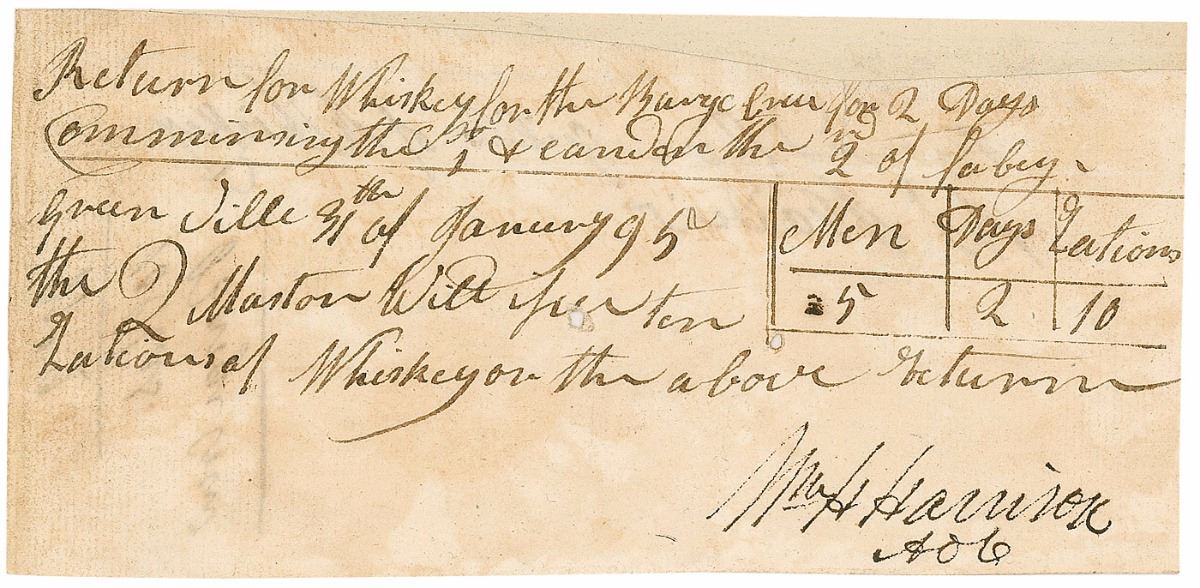 Return for Whiskey for the Barge Crew for 2 Days
Comminsing the 1st & eanden the 2nd of fabey
Green Ville 31th of January 95
Men Days Rations
5 2 10
the Q Maston Will isue ten
Rations of Whiskey on the above Return
Wm H Harrison
ADC